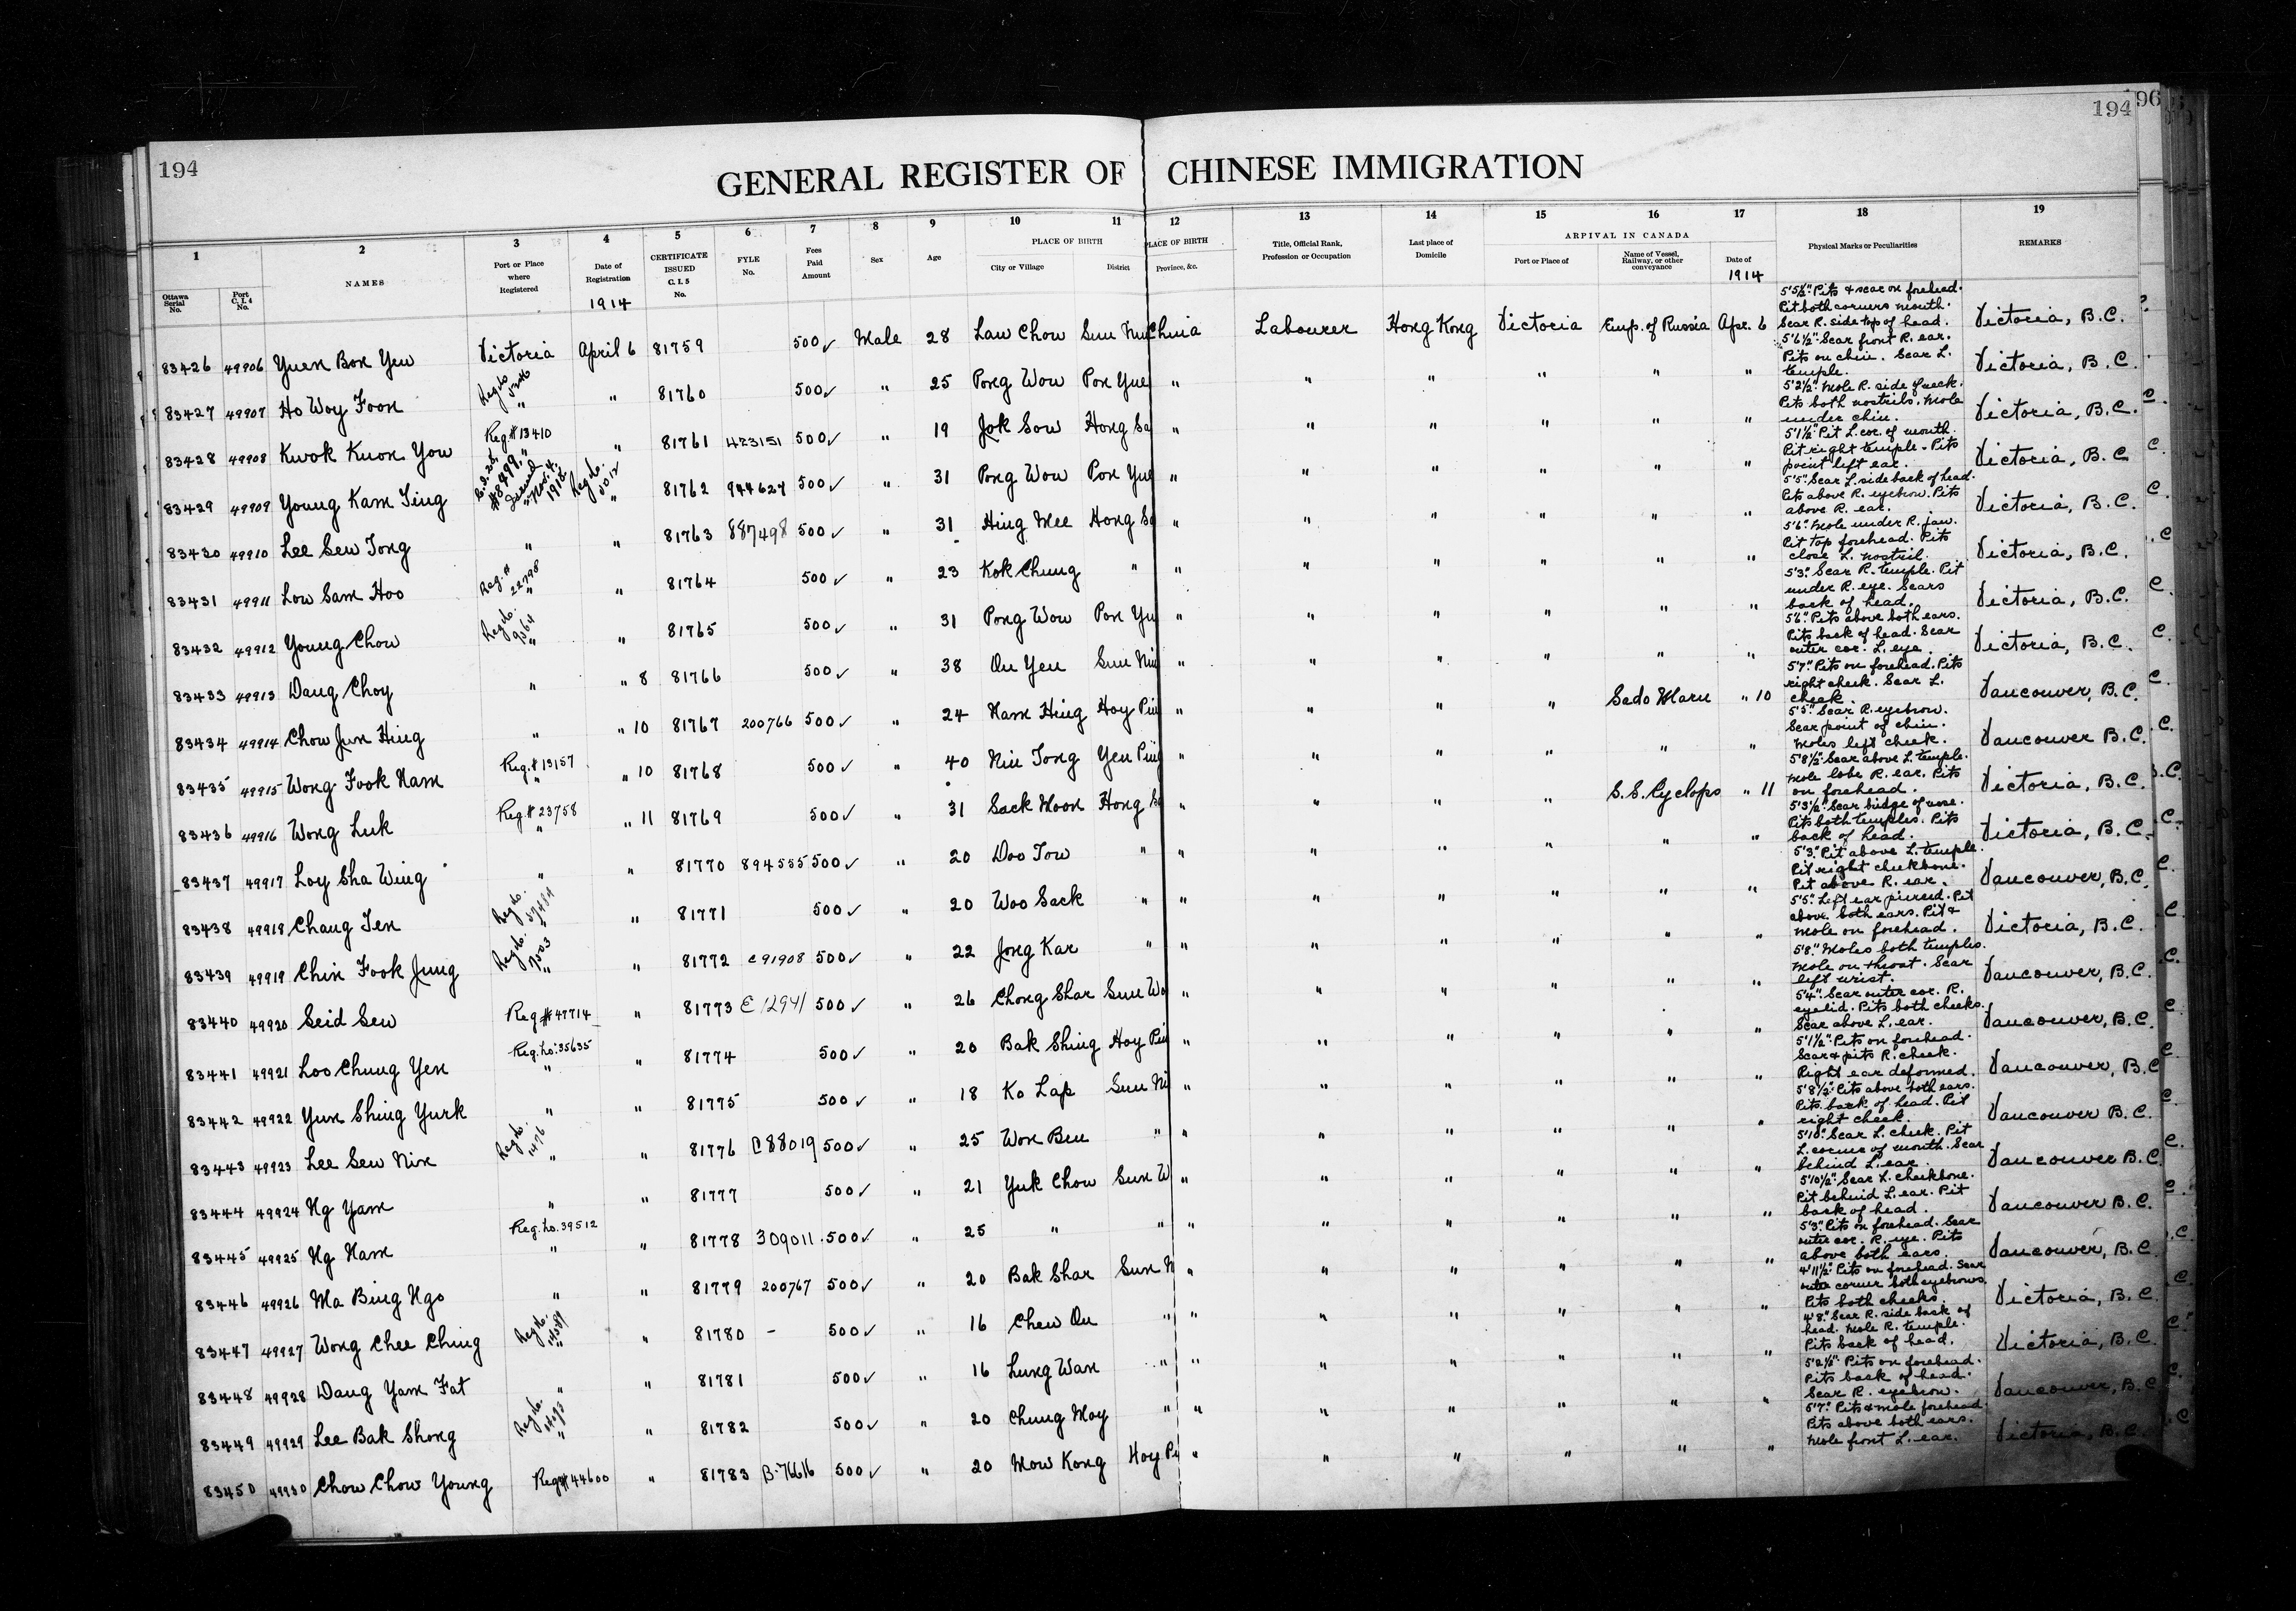 194
194
96
GENERAL REGISTER OF CHINESE IMMIGRATION
1 2 3 4 5 6 7 8 9 10 11 12 13 14 15 16 17 18 19
Ottawa Serial No. Port C.I.4 No. NAMES Port or Place where Registered Date of Registration CERTIFICATE ISSUED C.I.5 No. FYLE No. Fees Paid Amount Sex Age PLACE OF BIRTH City or Village District PLACE OF BIRTH Province, &c. Title, Official Rank, Profession or Occupation Last place of Domicile ARRIVAL IN CANADA Port or Place of Name of Vessel, Railway, or other conveyance Date of Physical Marks or Peculiarities REMARKS
1914 1914
83426 49906 Yuen Bon Yew Victoria April 6 81759 500✓ Male 28 Law Chow Sun China Labourer Hong Kong Victoria Emp. of Russia Apr. 6 5'5½" Pits & scar on forehead. Pit both corners mouth. Scar R. side top of head. Victoria, B.C.
83427 49907 Ho Woy Foon " " 81760 500✓ " 25 Pong Wow Pon Yue " " " " " " 5'6½" Scar front R. ear. Pits on chin. Scar L. temple. Victoria, B.C.
83428 49908 Kwok Kuon Yow Reg.# 13410 " " 81761 423151 500✓ " 19 Jok Sow Hong Sa " " " " " " 5'2½" Mole R. side of neck. Pits both nostrils. Mole under chin. Victoria, B.C.
83429 49909 Young Kam Ting #8499 Issued Nov. 4, 1918 " 81762 944627 500✓ " 31 Pong Wow Pon Yue " " " " " " 5'1½" Pit L. cor. of mouth. Pit right temple. Pits point left ear. Victoria, B.C.
83430 49910 Lee Sew Tong " " 81763 887498 500✓ " 31 Hing Mee Hong Sa " " " " " " 5'5" Scar L. side back of head. Pits above R. eyebrow. Pits above R. ear. Victoria, B.C.
83431 49911 Low Sam Hoo Reg.# 22798 " " 81764 500✓ " 23 Kok Chung " " " " " " " 5'6" Mole under R. jaw. Pit top forehead. Pits close L. nostril. Victoria, B.C.
83432 49912 Young Chow Reg. No. 9364 " " 81765 500✓ " 31 Pong Wow Pon Yu " " " " " " 5'3" Scar R. temple. Pit under R. eye. Scars back of head. Victoria, B.C.
83433 49913 Dang Choy " " 8 81766 500✓ " 38 On Yen Sun Nin " " " " " " 5'6" Pits above both ears. Pits back of head. Scar outer cor. L. eye. Victoria, B.C.
83434 49914 Chow Jun Hing " " 10 81767 200766 500✓ " 24 Nam Hing Hoy Pin " " " " Sado Maru " 10 5'7" Pits on forehead. Pits right cheek. Scar L. cheek. Vancouver, B.C.
83435 49915 Wong Fook Nam Reg.# 13157 " " 10 81768 500✓ " 40 Nin Tong Yen Ping " " " " " " 5'5" Scar R. eyebrow. Scar point of chin. Moles left cheek. Vancouver B.C.
83436 49916 Wong Luk Reg.# 23758 " " 11 81769 500✓ " 31 Sack Moon Hong " " " " S.S. Cyclops " 11 5'8½" Scar above L. temple. Mole lobe R. ear. Pits on forehead. Victoria, B.C.
83437 49917 Loy Sha Wing " " 81770 894535 500✓ " 20 Doo Tow " " " " " " " 5'3½" Scar bridge of nose. Pits both temples. Pits back of head. Victoria, B.C.
83438 49918 Chang Ten Reg. No. " " 81771 500✓ " 20 Woo Sack " " " " " " " 5'3" Pit above L. temple. Pit right cheekbone. Pit above R. ear. Vancouver, B.C.
83439 49919 Chin Fook Jung Reg. No. " " 81772 C91908 500✓ " 22 Jong Kar " " " " " " " 5'5" Left ear pierced. Pit above both ears. Pit & mole on forehead. Victoria, B.C.
83440 49920 Seid Sew Reg.# 47714 " 81773 C12941 500✓ " 26 Chong Shar Sun Wo " " " " " " 5'8" Moles both temples. Mole on throat. Scar left wrist. Vancouver, B.C.
83441 49921 Loo Chung Yen Reg. No. 35635 " " 81774 500✓ " 20 Bak Shing Hoy Pin " " " " " " 5'4" Scar outer cor. R. eyelid. Pits both cheeks. Scar above L. ear. Vancouver, B.C.
83442 49922 Yun Shing Yurk " " 81775 500✓ " 18 Ko Lap Sun Ni " " " " " " 5'1½" Pits on forehead. Scar & pits R. cheek. Right ear deformed. Vancouver, B.C.
83443 49923 Lee Sew Nin Reg. No. 1476 " " 81776 C88019 500✓ " 25 Won Ben " " " " " " " 5'8½" Pits above both ears. Pits back of head. Pit right cheek. Vancouver B.C.
83444 49924 Ng Yam " " 81777 500✓ " 21 Yuk Chow Sun W " " " " " " 5'10" Scar L. cheek. Pit L. corner of mouth. Scar behind L. ear. Vancouver B.C.
83445 49925 Ng Nam Reg. No. 39512 " " 81778 309011 500✓ " 25 " " " " " " " " 5'10½" Scar L. cheekbone. Pit behind L. ear. Pit back of head. Vancouver B.C.
83446 49926 Ma Bing Ngo " " 81779 200767 500✓ " 20 Bak Shar Sun N " " " " " " 5'3" Pits on forehead. Scar outer cor. R. eye. Pits above both ears. Vancouver, B.C.
83447 49927 Wong Chee Ching Reg. No. " " 81780 - 500✓ " 16 Chew On " " " " " " " 4'11½" Pits on forehead. Scar outer corner both eyebrows. Pits both cheeks. Victoria, B.C.
83448 49928 Dang Yam Fat " " 81781 500✓ " 16 Lung Wan " " " " " " " 4'8" Scar R. side back of head. Mole R. temple. Pits back of head. Victoria, B.C.
83449 49929 Lee Bak Shong Reg. No. " " 81782 500✓ " 20 Chung Moy " " " " " " " 5'2½" Pits on forehead. Pits back of head. Scar R. eyebrow. Vancouver, B.C.
83450 49930 Chow Chow Young Reg# 44600 " 81783 B-76616 500✓ " 20 Mow Kong Hoy Pi " " " " " " 5'7" Pits & mole forehead. Pits above both ears. Mole front L. ear. Victoria, B.C.